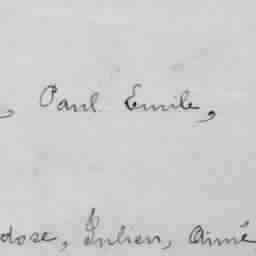 , Paul Emile,
dose, Julien, Aimé